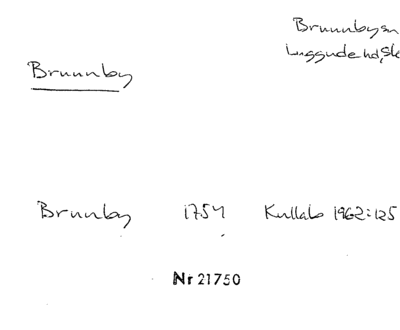 Brunnby sn
Luggude hd, Sk
Brunnby
Brunnby 1754 Kullab 1962:125
Nr 21750